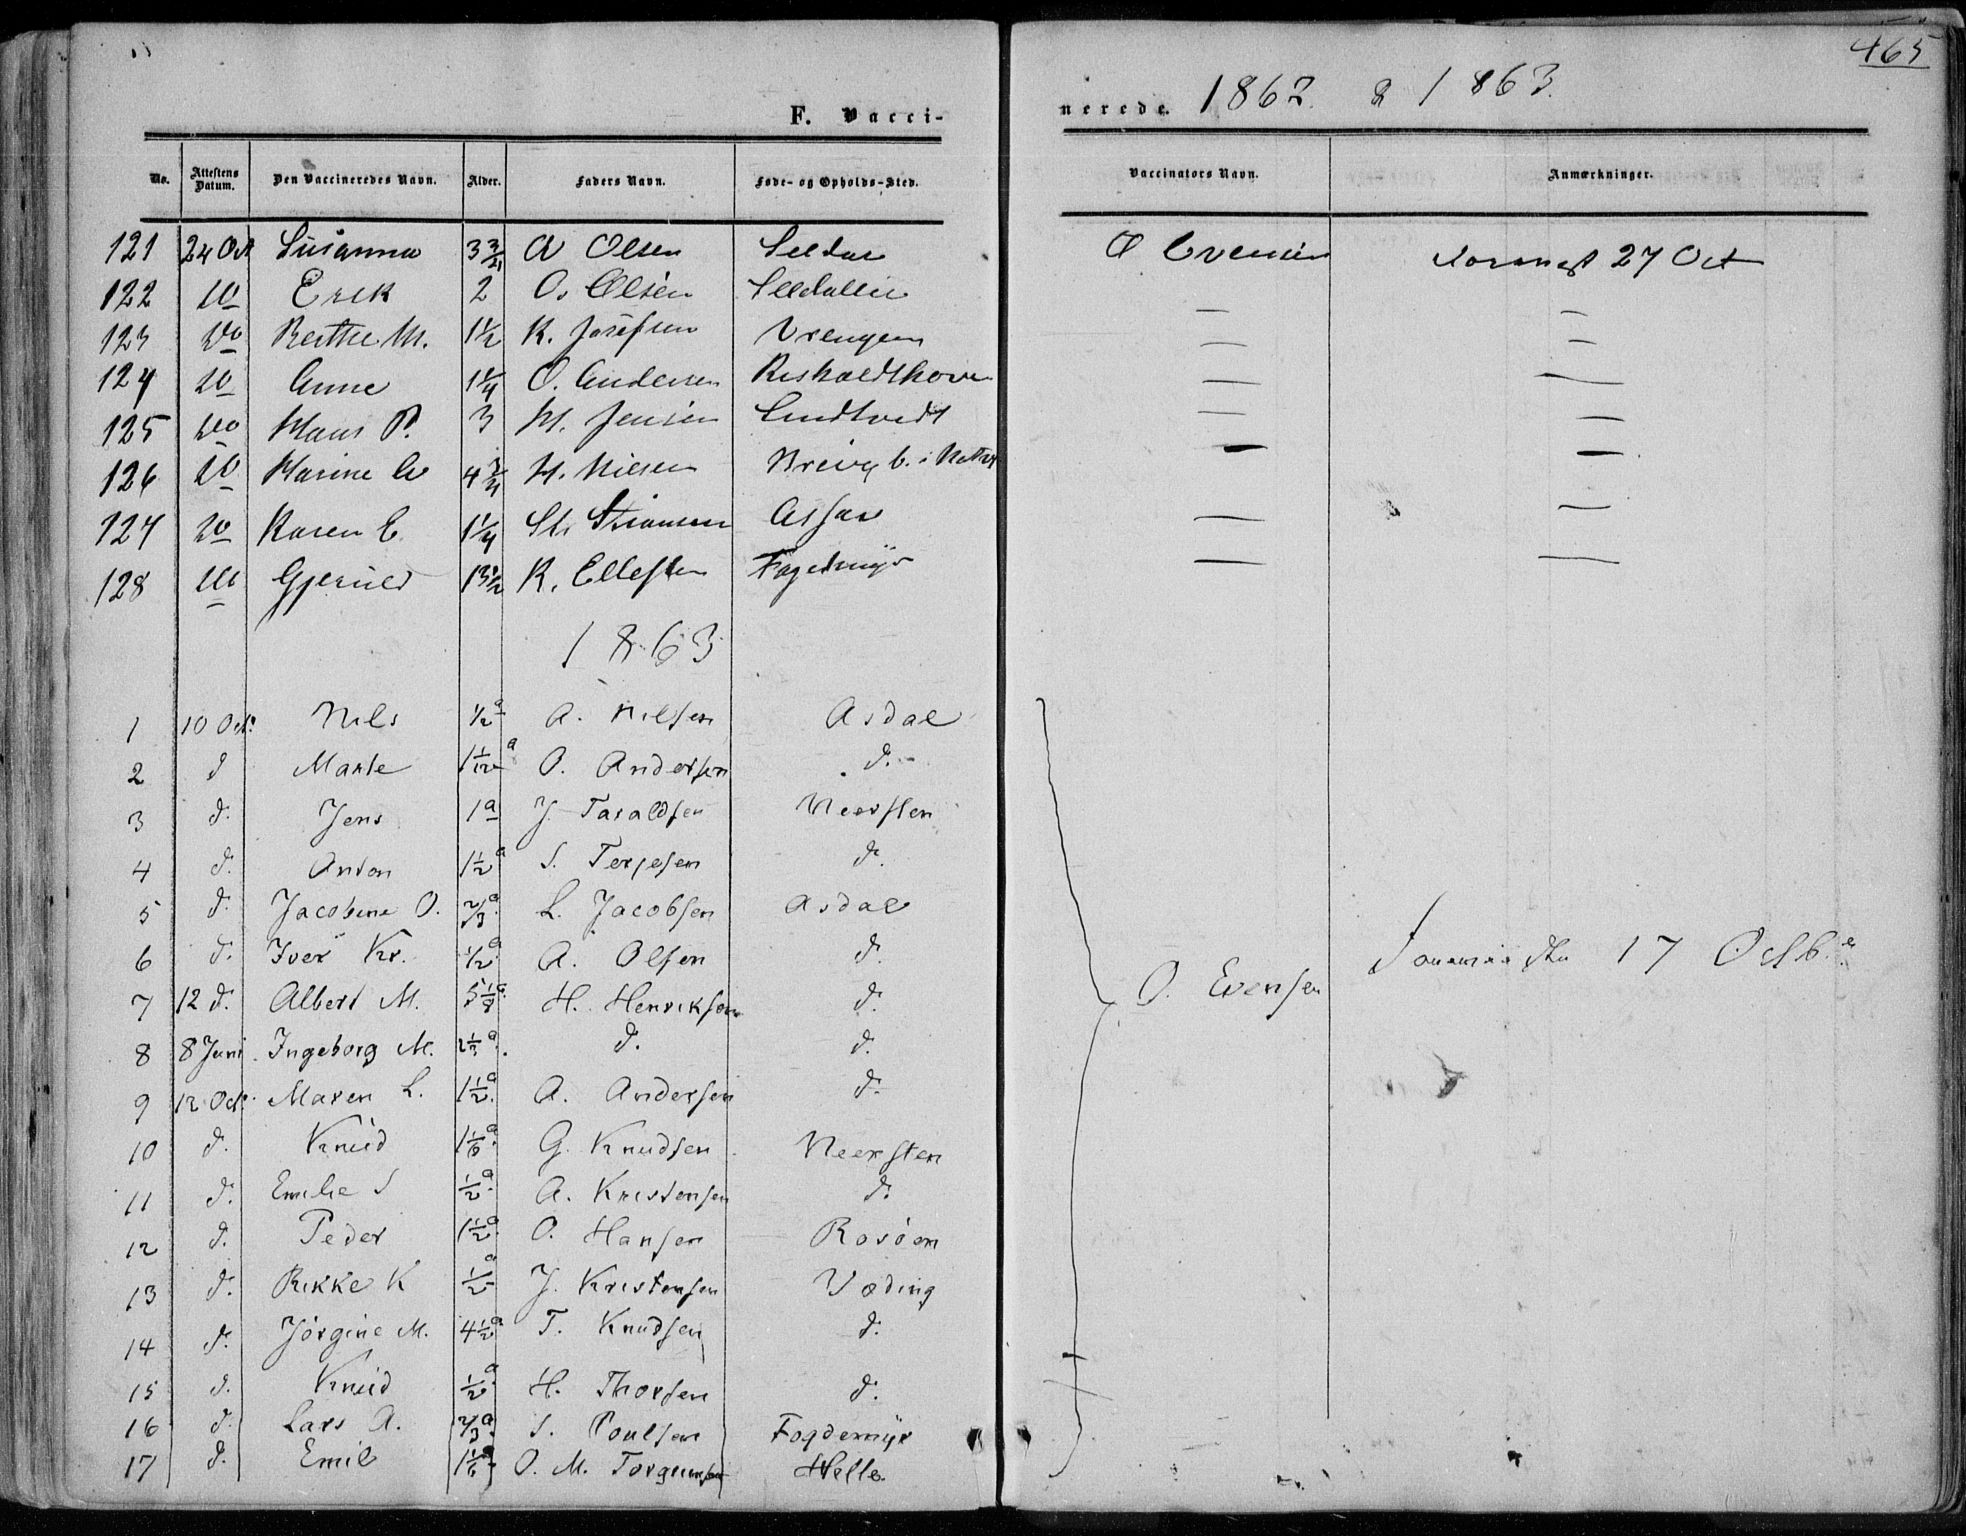 465
F. Vacci-
nerede. 1862. & 1863.
No. Attestens Datum. Den Vaccineredes Navn. Alder. Faders Navn. Føde- og Opholds-Sted. Vaccinators Navn. Anmærkninger.
121 24 Oct Susanna 3 3/4 A Olsen O Evensen 27 Oct
122 do Erik 2 O. Olsen — —
123 do Berthe M. 1 1/2 K. Josefsen Vrengen — —
124 do Anne 1 1/4 O. Andersen — —
125 do Hans P. 3 M. Jensen Lindtvedt — —
126 do Karine A 4 3/4 H. Nilsen — —
127 do Karen E. 1 1/4 — —
128 do Gjeruld 13 1/2 K. Ellefsen Fogdemyr — —
1863
1 10 Oct. Nils 1/2 a A. Nilsen Asdal
2 d Marte 1 1/12 a O. Andersen d.
3 d. Jens 1 a J. Taraldsen Neersten
4 d. Anton 1 1/2 a S. Terjesen d.
5 d. Jacobine O. 2/3 a. L. Jacobsen Asdal
6 d. Iver Kr. 1/2 a A. Olsen d.
7 12 d. Albert M. H. Henriksen d. O. Evensen 17 Octb.
8 8 Juni Ingeborg M. 2 1/3 a. d. d.
9 12 Oct. Maren L. 1 1/2 a. A. Andersen d.
10 d. Knud 1 1/6 a. G. Knudsen Neersten
11 d. Emilie S 1/2 a. A. Kristensen d.
12 d. Peder 1 1/2 a. O. Hansen Rosøen
13 d. Rikke K 1/2 a J. Kristensen Væding
14 d. Jørgine M. 4 1/2 a T. Knudsen d.
15 d. Knud 1/2 a H. Thorsen d.
16 d. Lars A. 2/3 a. S. Poulsen Fogdemyr
17 d. Emil 1 1/6 a O. M. Torgrimsen Helle